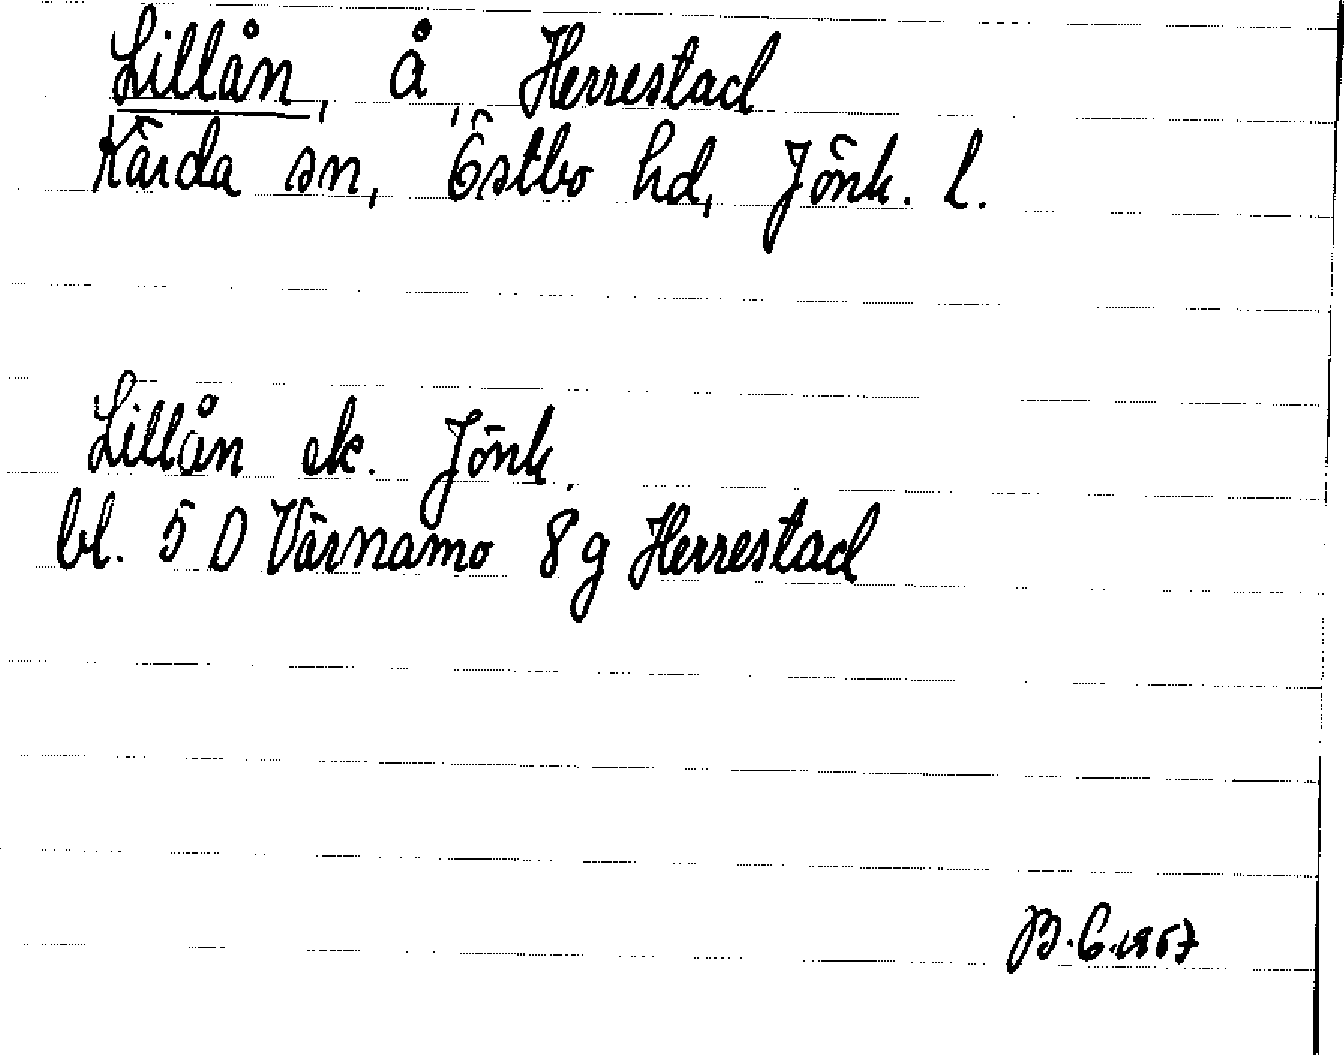 Lillån, å, Herrestad
Kärda sn, Östbo hd, Jönk. l.
Lillån ek. Jönk.
bl. 5 D Värnamo 8 g Herrestad
B.G. 1967